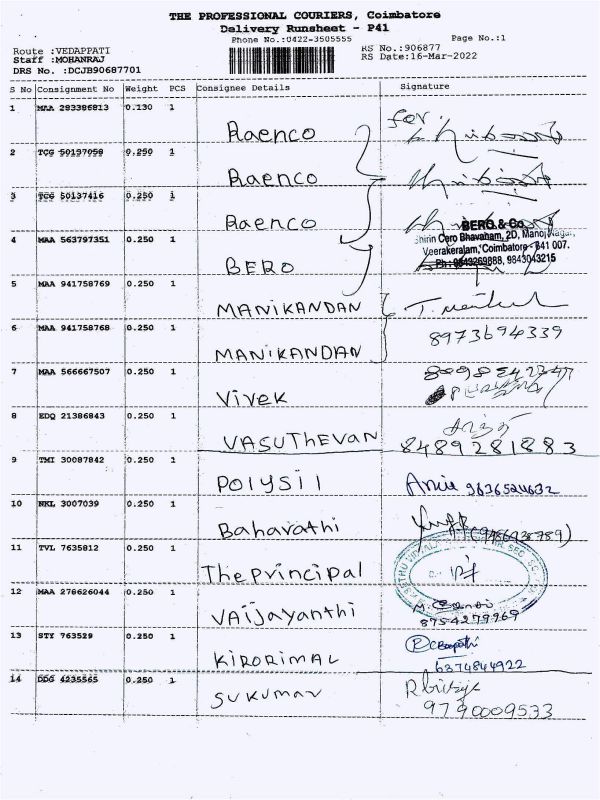 THE PROFESSIONAL COURIERS, Coimbatore
Delivery Runsheet - P41
Phone No.:0422-3505555
Page No.:1
Route :VEDAPPATI
RS No.:906877
Staff :MOHANRAJ
RS Date:16-Mar-2022
DRS No. :DCJB90687701
S No Consignment No Weight PCS Consignee Details Signature
1 MAA 283386813 0.130 1
Raenco for.
2 TCG 50137058 0.250 1
Raenco
3 TCG 50137416 0.250 1
Raenco
BERO & Co
4 MAA 563797351 0.250 1
Shirin Cero Bhavaham, 2D, Manoj Nagar,
Veerakeralam, Coimbatore - 641 007.
BERO Ph : 9843269888, 9843043215
5 MAA 941758769 0.250 1
MANIKANDAN
6 MAA 941758768 0.250 1
MANIKANDAN 8973694339
7 MAA 566667507 0.250 1
Vivek
8 EDQ 21386843 0.250 1
VASUTHEVAN 8489281883
9 TMI 30087842 0.250 1
Polysil 9636524632
10 NKL 3007039 0.250 1
Baharathi
11 TVL 7635812 0.250 1
The principal
12 MAA 278626044 0.250 1
VAijayanthi 8754279769
13 STY 763529 0.250 1
KIRORIMAL 6374844922
14 DDG 4235565 0.250 1
SUKUMAR 9790009533